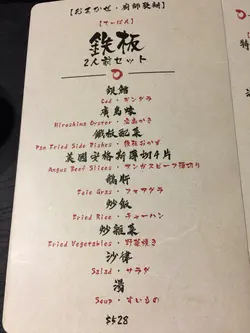 【おまかせ・廚師發辦】
【てっぱん】
鉄板
2人前セット
銀鱈
Cod・ギンダラ
廣島蠔
Hiroshima Oyster・広島かき
鐵板配菜
Pan Fried Side Dishes・鉄板おかず
美國安格斯薄切4片
Angus Beef Slices・アンガスビーフ薄切り
鵝肝
Foie Gras・フォアグラ
炒飯
Fried Rice・チャーハン
炒雜菜
Fried Vegetables・野菜焼き
沙律
Salad・サラダ
湯
Soup・すいもの
$528
特